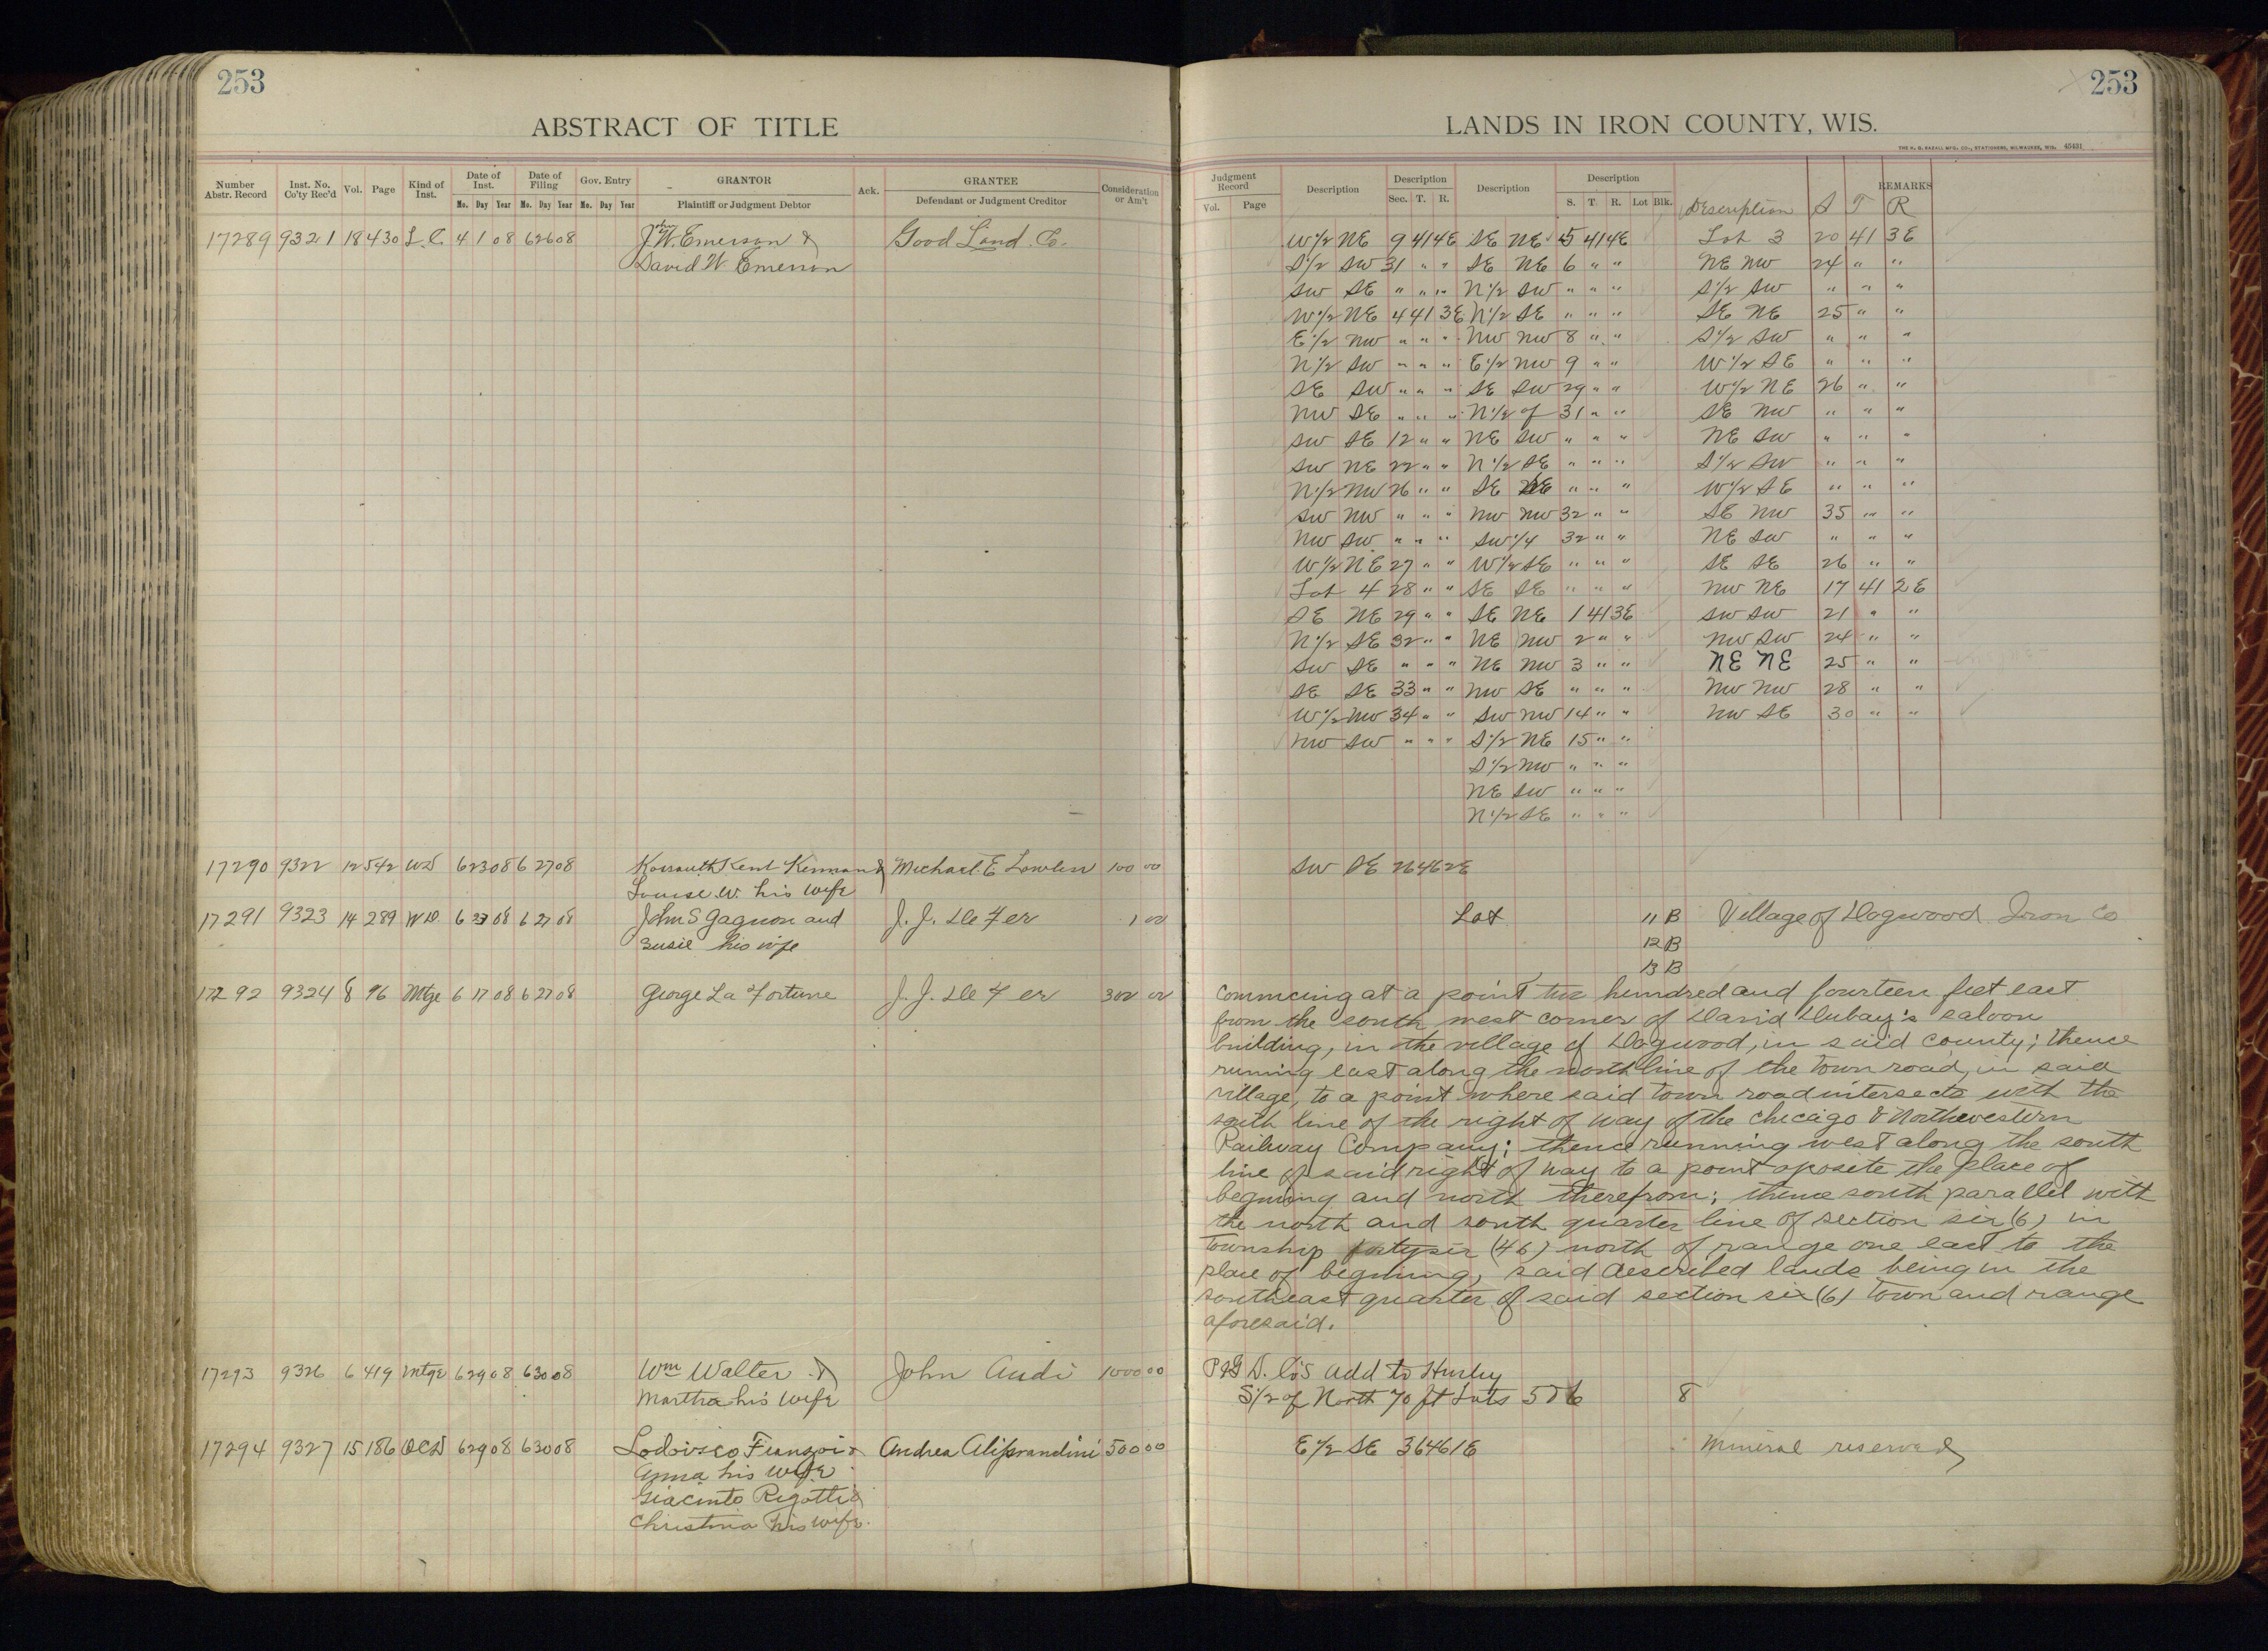 253
253
ABSTRACT OF TITLE
LANDS IN IRON COUNTY, WIS.
THE H. G. RAZALL MFG. CO., STATIONERS, MILWAUKEE, WIS. 45431
Number Abstr. Record | Inst. No. Co'ty Rec'd | Vol. | Page | Kind of Inst. | Date of Inst. Mo. Day Year | Date of Filing Mo. Day Year | Gov. Entry Mo. Day Year | GRANTOR Plaintiff or Judgment Debtor | Ack. | GRANTEE Defendant or Judgment Creditor | Consideration or Am't
Judgment Record Vol. Page | Description | Description Sec. T. R. | Description | Description S. T. R. Lot Blk. | Description S T R | REMARKS
17289 9321 18 430 L.C. 4 1 08 6 26 08 J. W. Emerson & Good Land Co. W 1/2 NE 9 41 4E SE NE 5 41 4E Lot 3 20 41 3E
David W. Emerson S 1/2 SW 31 " " SE NE 6 " " NE NW 24 " "
SW SE " " " N 1/2 SW " " " S 1/2 SW " " "
W 1/2 NE 4 41 3E N 1/2 SE " " " SE NE 25 " "
E 1/2 NW " " " NW NW 8 " " S 1/2 SW " " "
N 1/2 SW " " " E 1/2 NW 9 " " W 1/2 SE " " "
SE SW " " " SE SW 29 " " W 1/2 NE 26 " "
NW SE " " " N 1/2 of 31 " " SE NW " " "
SW SE 12 " " NE SW " " " NE SW " " "
SW NE 22 " " N 1/2 SE " " " S 1/2 SW " " "
N 1/2 NW 26 " " SE SE " " " W 1/2 SE " " "
SW NW " " " NW NW 32 " " SE NW 35 " "
NW SW " " " SW 1/4 32 " " NE SW " " "
W 1/2 NE 27 " " W 1/2 SE " " " SE SE 26 " "
Lot 4 28 " " SE SE " " " NW NE 17 41 2E
SE NE 29 " " SE NE 1 41 3E SW SW 21 " "
N 1/2 SE 32 " " NE NW 2 " " NW SW 24 " "
SW SE " " " NE NW 3 " " NE NE 25 " "
SE SE 33 " " NW SE " " " NW NW 28 " "
W 1/2 NW 34 " " SW NW 14 " " NW SE 30 " "
NW SW " " " S 1/2 NE 15 " "
S 1/2 NW " " "
NE SW " " "
N 1/2 SE " " "
17290 9322 12 542 WD 6 23 08 6 27 08 Kossuth Kent Kennan & Michael E Lawler 100 00 SW SE 26 46 2E
Louise W. his wife
17291 9323 14 289 WD. 6 23 08 6 27 08 John S Gagnon and J. J. De Fer 1 00 Lot 11 B Village of Dogwood Iron Co
Susie his wife 12 B
13 B
17292 9324 8 96 Mtge 6 17 08 6 27 08 George La Fortune J. J. De Fer 302 00 Commcing at a point two hundred and fourteen feet east
from the south west corner of David Dubay's saloon
building, in the village of Dogwood, in said county; thence
runing east along the north line of the town road, in said
village, to a point where said town road intersects with the
south line of the right of way of the Chicago & Northwestern
Railway Company; thence running west along the south
line of said right of way to a point oposite the place of
begining and north therefrom; thence south parallel with
the north and south quarter line of section six (6) in
Township fortysix (46) north of range one east to the
place of begining, said described lands being in the
southeast quarter of said section six (6) town and range
aforesaid.
17293 9326 6 419 Mtge 6 29 08 6 30 08 Wm Walter & John Audi 1000 00 P & G D. Co's add to Hurley
Martha his wife S 1/2 of North 70 ft Lots 5 & 6 8
17294 9327 15 186 QCD 6 29 08 6 30 08 Lodovico Franzoi & Andrea Aliprandini 500 00 E 1/2 SE 36 46 1E Mineral reserved
Anna his wife
Giacinto Rigotti &
Christina his wife.